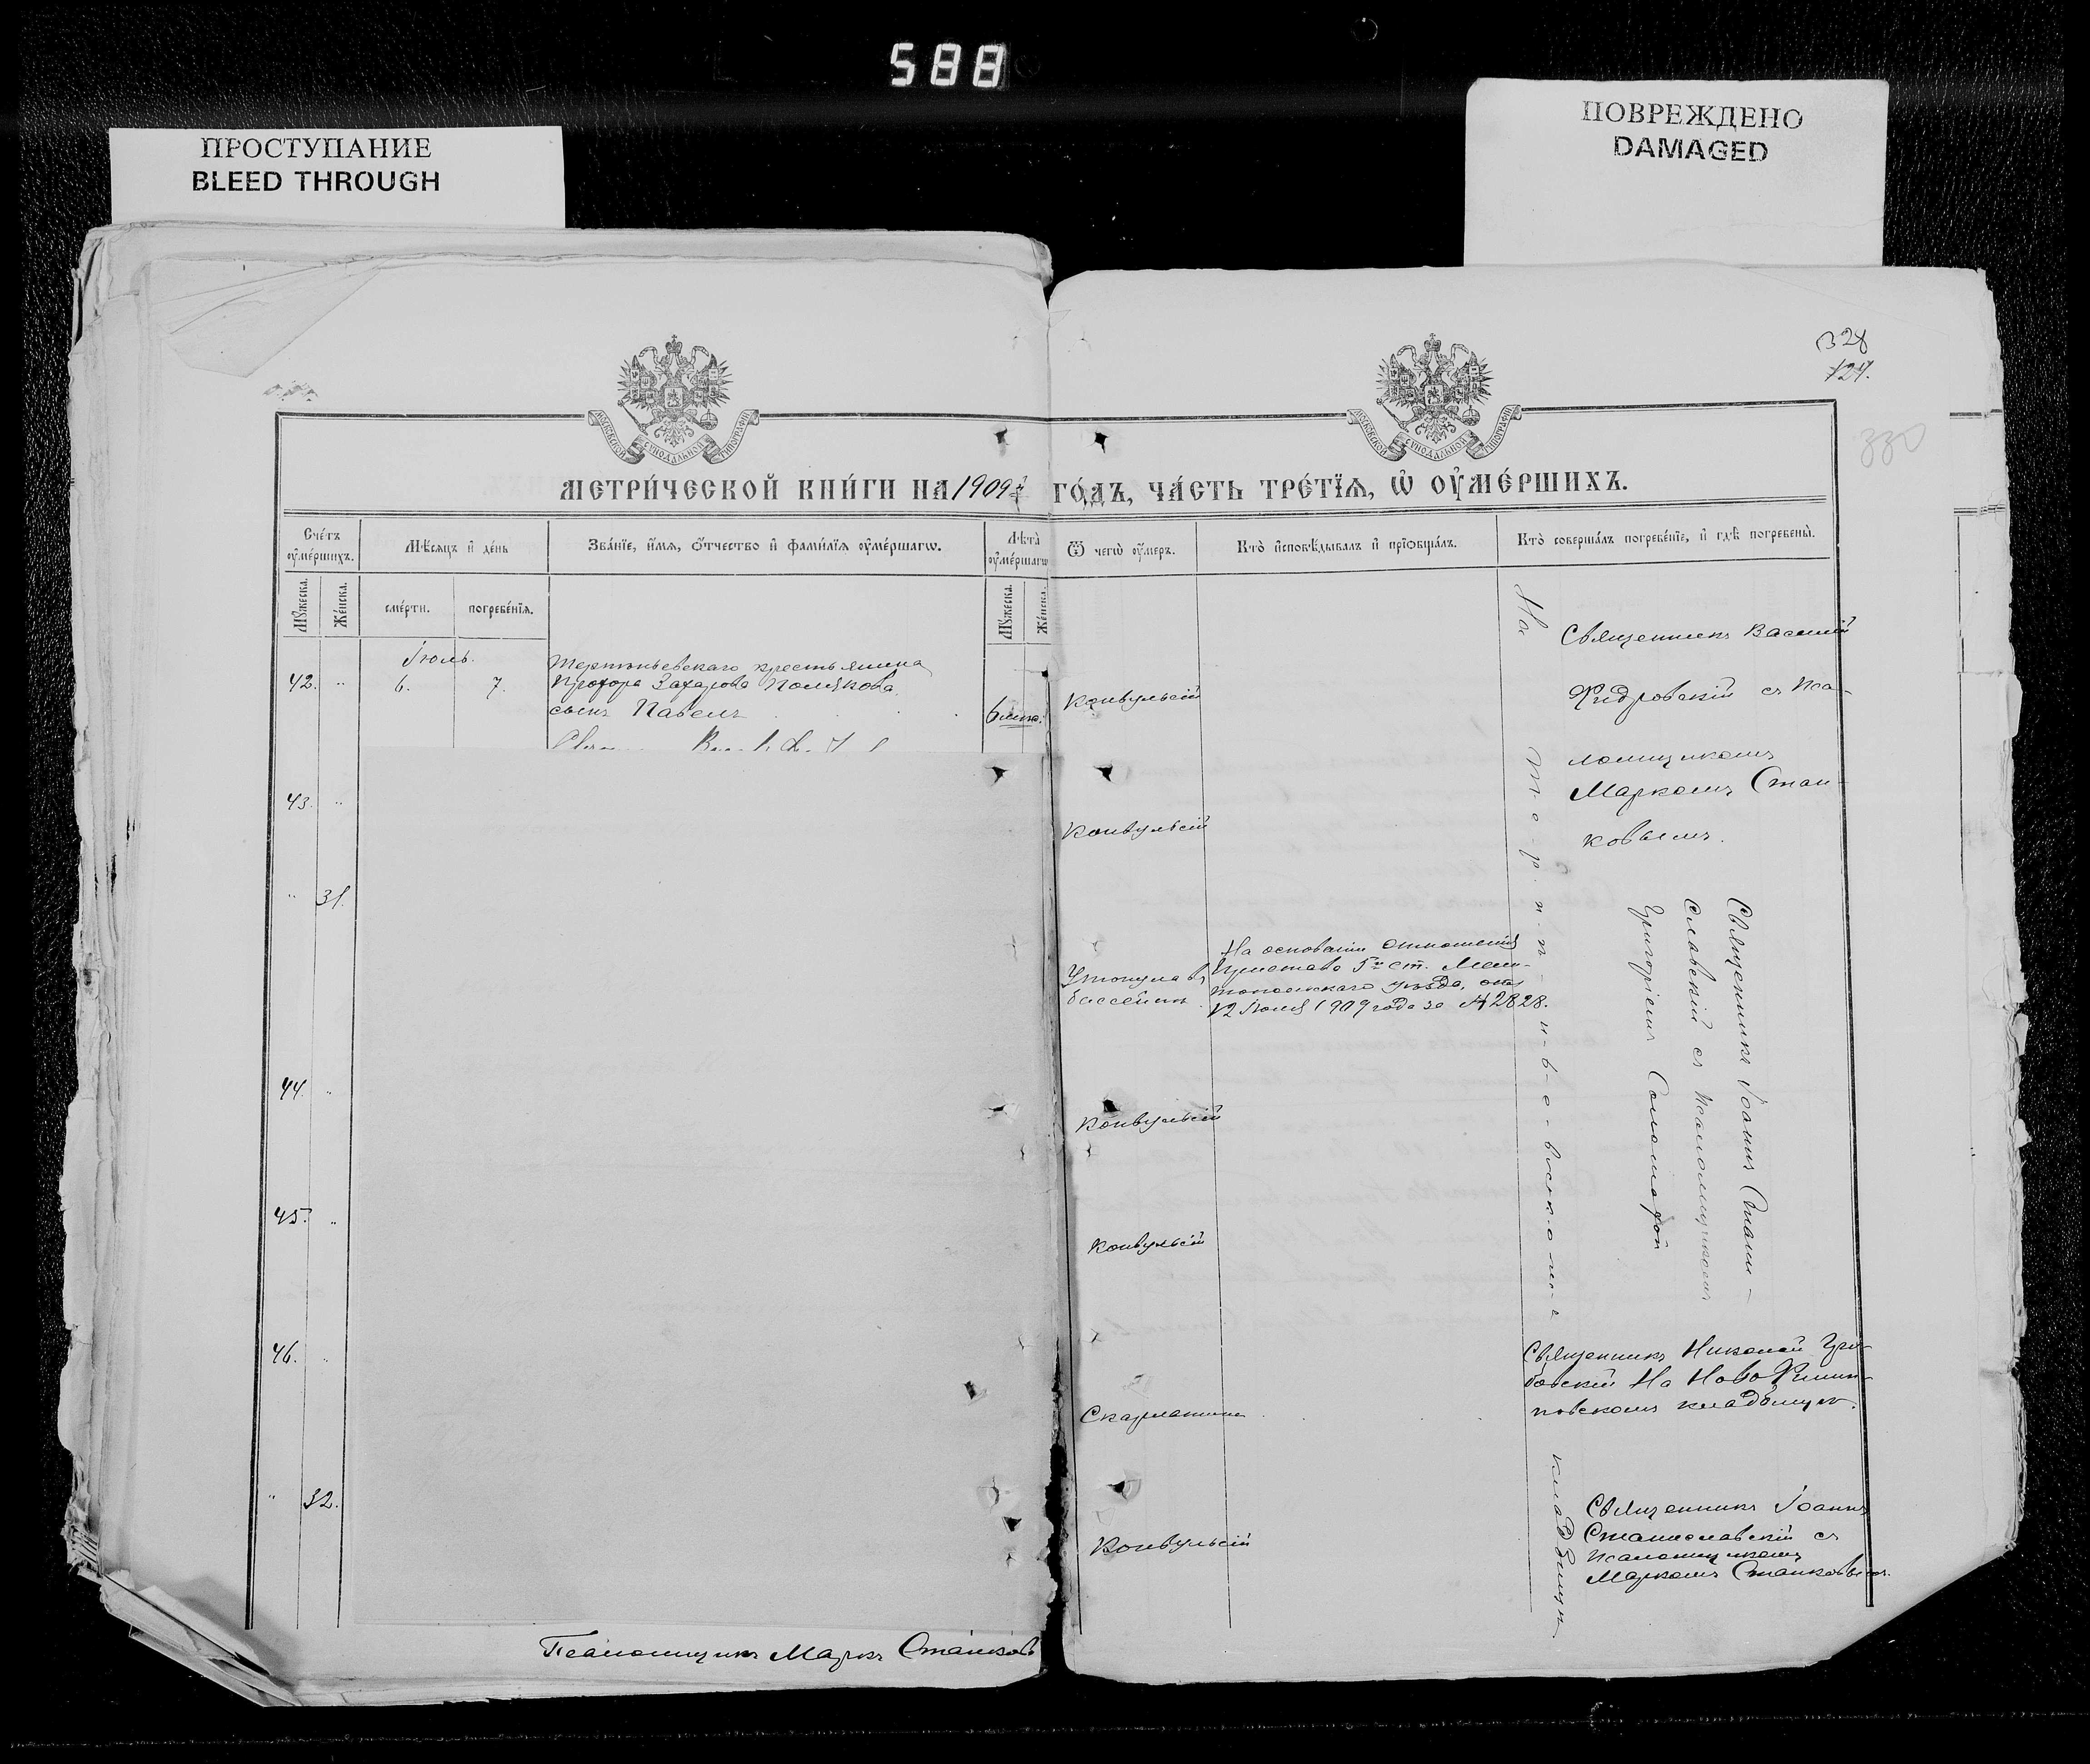 588
ПРОСТУПАНИЕ
BLEED THROUGH
ПОВРЕЖДЕНО
DAMAGED
328
127.
330
МОСКОВСКОЙ СѴНОДАЛЬНОЙ ТИПОГРАФІИ
МОСКОВСКОЙ СѴНОДАЛЬНОЙ ТИПОГРАФІИ
МЕТРИ́ЧЕСКОЙ КНИ́ГИ НА 1909й ГО́ДЪ, ЧА́СТЬ ТРЕ́ТЇѦ, Ѡ҆ ОУ҆МЕ́РШИХЪ.
Сче́тъ оу҆ме́ршихъ.
Мꙋ́жеска.
Же́нска.
Мѣ́сяцъ и҆ де́нь
сме́рти.
погребе́нїѧ.
Зва́нїе, и҆́мѧ, ѻ҆́тчество и҆ фами́лїѧ оу҆ме́ршагѡ.
Лѣ́та оу҆ме́ршагѡ
Мꙋ́жеска.
Же́нска.
Ѿ чегѡ̀ оу҆́меръ.
Кто̀ и҆сповѣ́дывалъ и҆ прїѡбща́лъ.
Кто̀ соверша́лъ погребе́нїе, и҆ гдѣ̀ погребены̀.
Іюль.
42. " 6. 7.
крестьянина
Прохора Захарова Полякова
сынъ Павелъ
6 мѣс.
Конвульсій
Священникъ Василій
съ Пса-
ломщикомъ
Маркомъ Стан-
ковымъ.
43. "
Конвульсій
" 31.
Утонула въ
бассейнѣ
На основаніи отношенія
Пристава 5го ст. Мели-
топольскаго уѣзда, отъ
12 Іюля 1909 года за № 2828.
Священникъ Іоаннъ Стани-
славскій съ Псаломщикомъ
Григоріемъ Соломахой
44. "
Конвульсій
45. "
Конвульсій
46. "
Скарлатина
Священникъ Николай Гри-
бовскій На Ново Филип-
повскомъ кладбищѣ.
" 32.
Конвульсій
Священникъ Іоаннъ
Станиславскій съ
Псаломщикомъ
Маркомъ Станковымъ.
На
кладбищѣ
Псаломщикъ Маркъ Станковъ